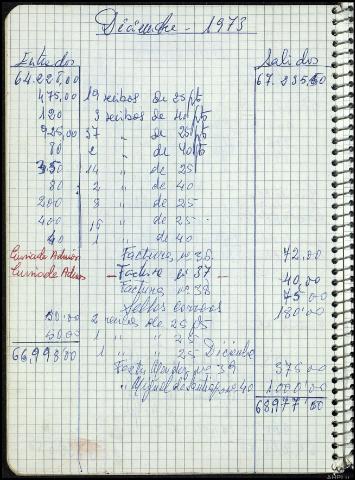 Diciembre - 1973
Entradas Salidos
64.228,00 67.235,50
475,00 19 recibos de 25 pts
120 3 recibos de 40 pts
925,00 37 " de 25 pts
80 2 " de 40 pts
350 14 " de 25
80 2 " de 40
200 8 " de 25
400 16 " de 25
40 1 " de 40
Factura nº 36 72,00
Factura nº 37 40,00
Factura nº 38 75,00
Sellos correos 180'00
50'00 2 de 25 pts
1 " " 25 Diciembre
66,998'00 nº 39 375'00
" Miguel de nº 40 1000'00
68,977'50